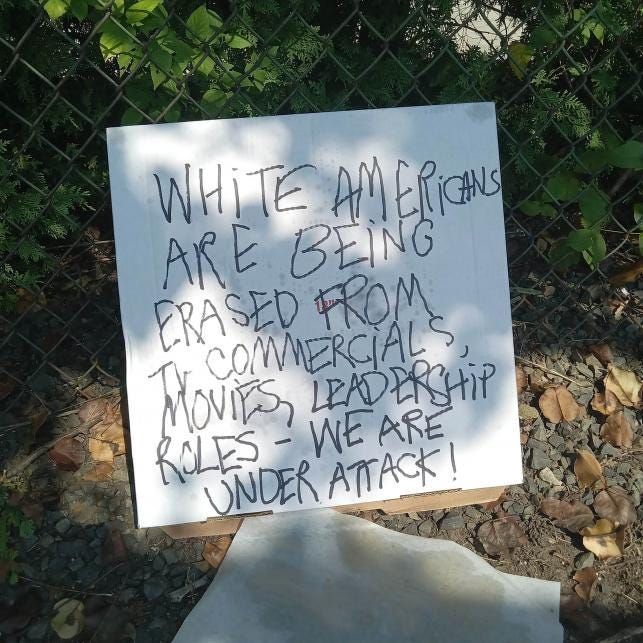 WHiTE AMERiCANS
ARE BEiNG
ERASED FROM
TV COMMERCiALS,
MOViES, LEADERSHiP
ROLES - WE ARE
UNDER ATTACK!